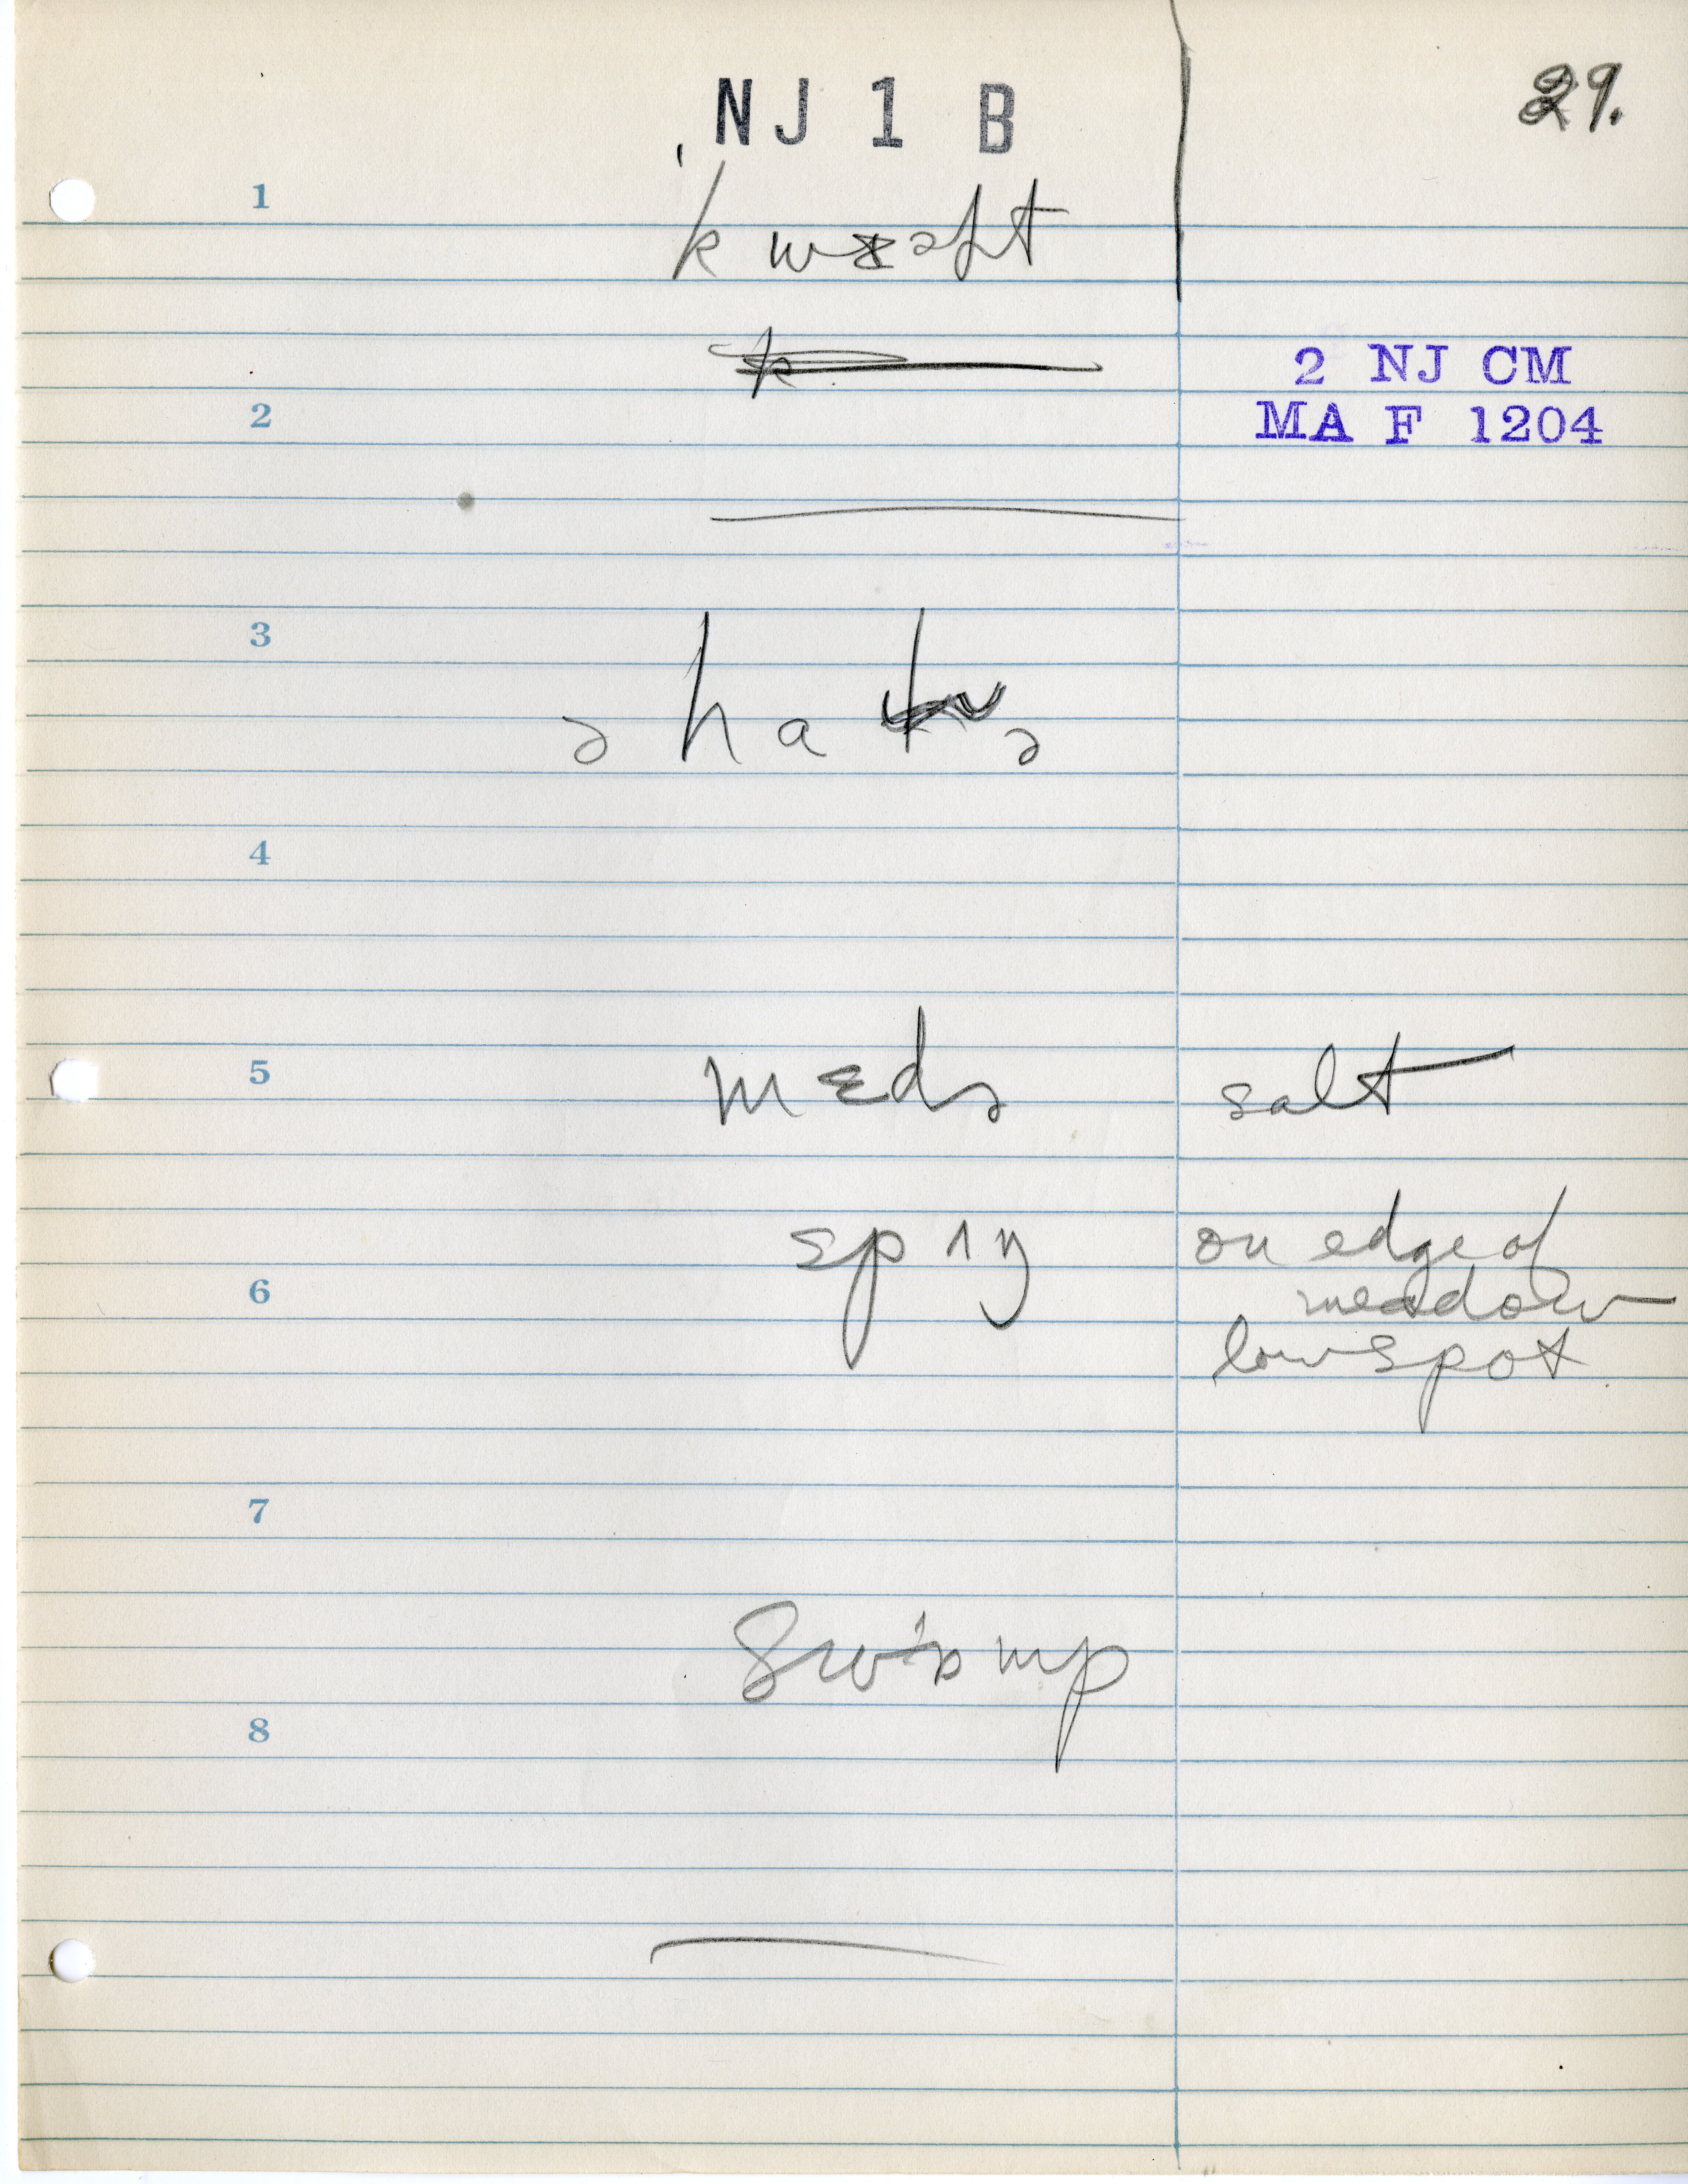 NJ 1 B
29.
1
2 NJ CM
2
MA F 1204
3
ə h a
4
5
mɛdə
salt
spɪŋ
on edge of
6
meadow
low spot
7
8